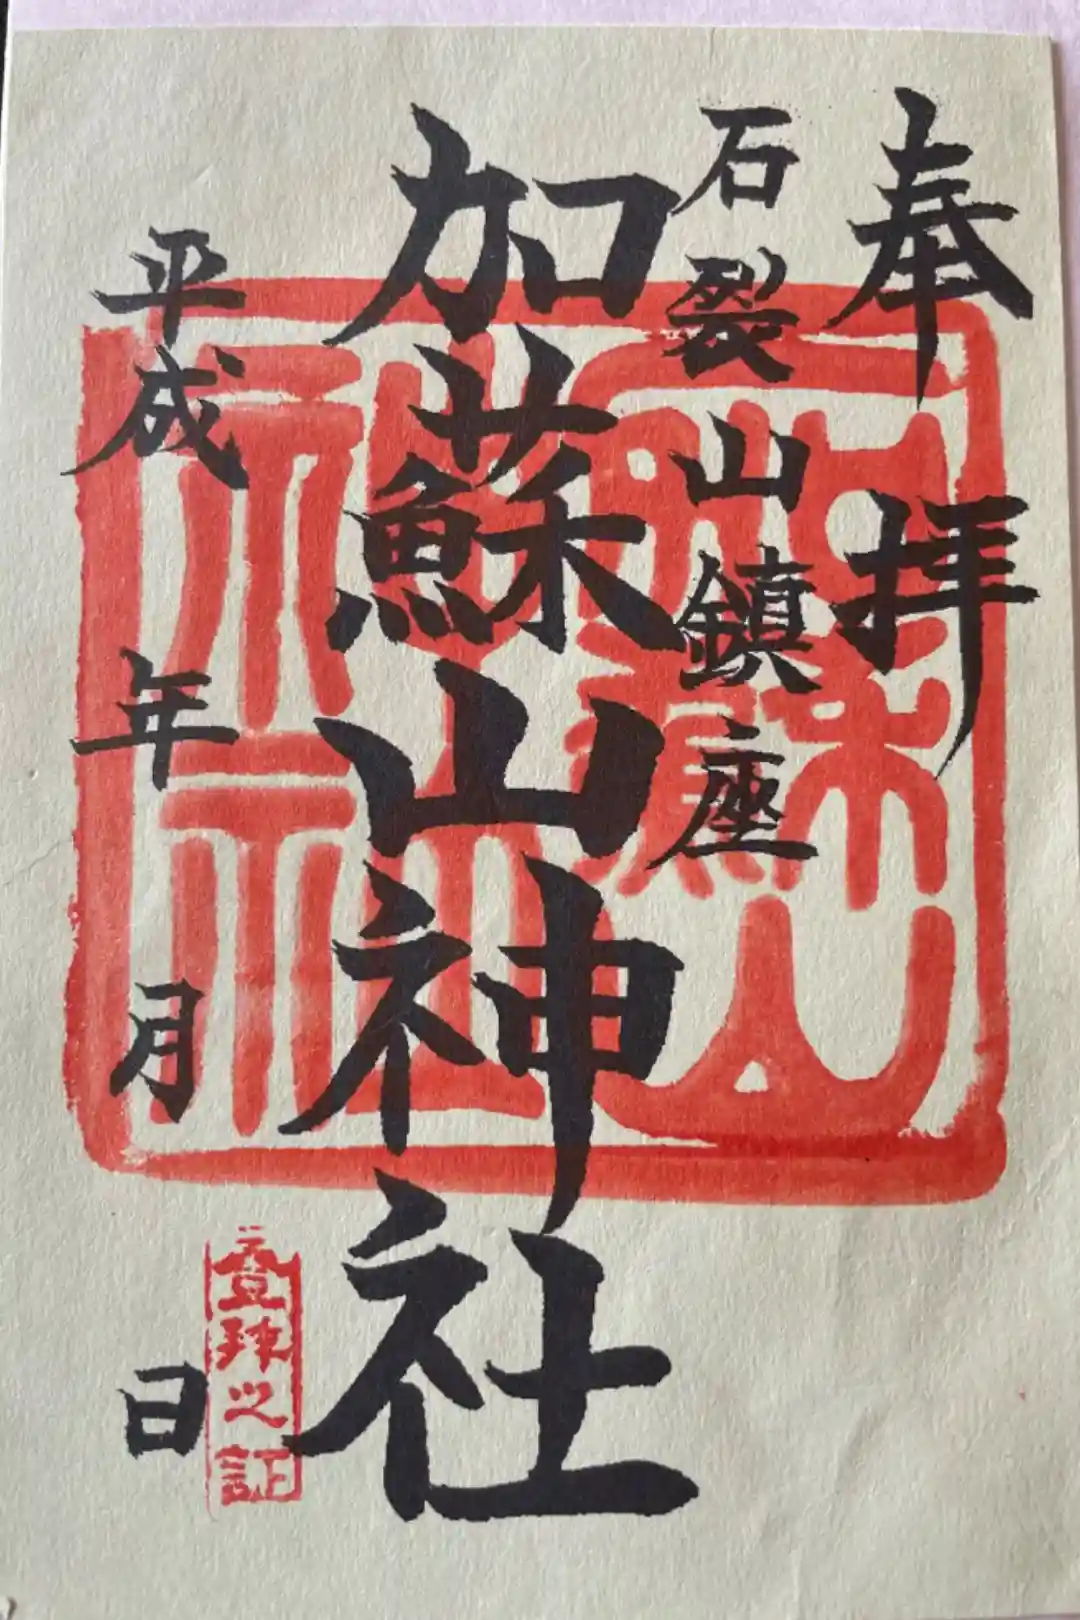 奉拝
石裂山鎮座
加蘇山神社
平成 年 月 日
登拝之証
加蘇山
神社